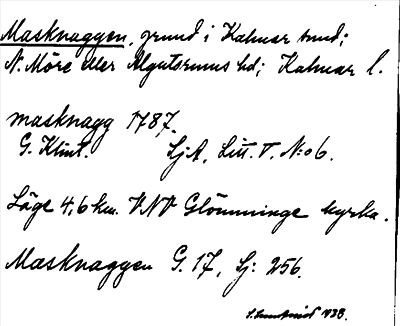 Masknaggen, grund i Kalmar sund;
N. Möre eller Algutsrums hd; Kalmar l.
masknagg 1787.
G. Klint. SjA, Litt. V, N:o 6.
Läge 4,6 km. VNV Glömminge kyrka.
Masknaggen G. 17, Sj: 256.
1938.